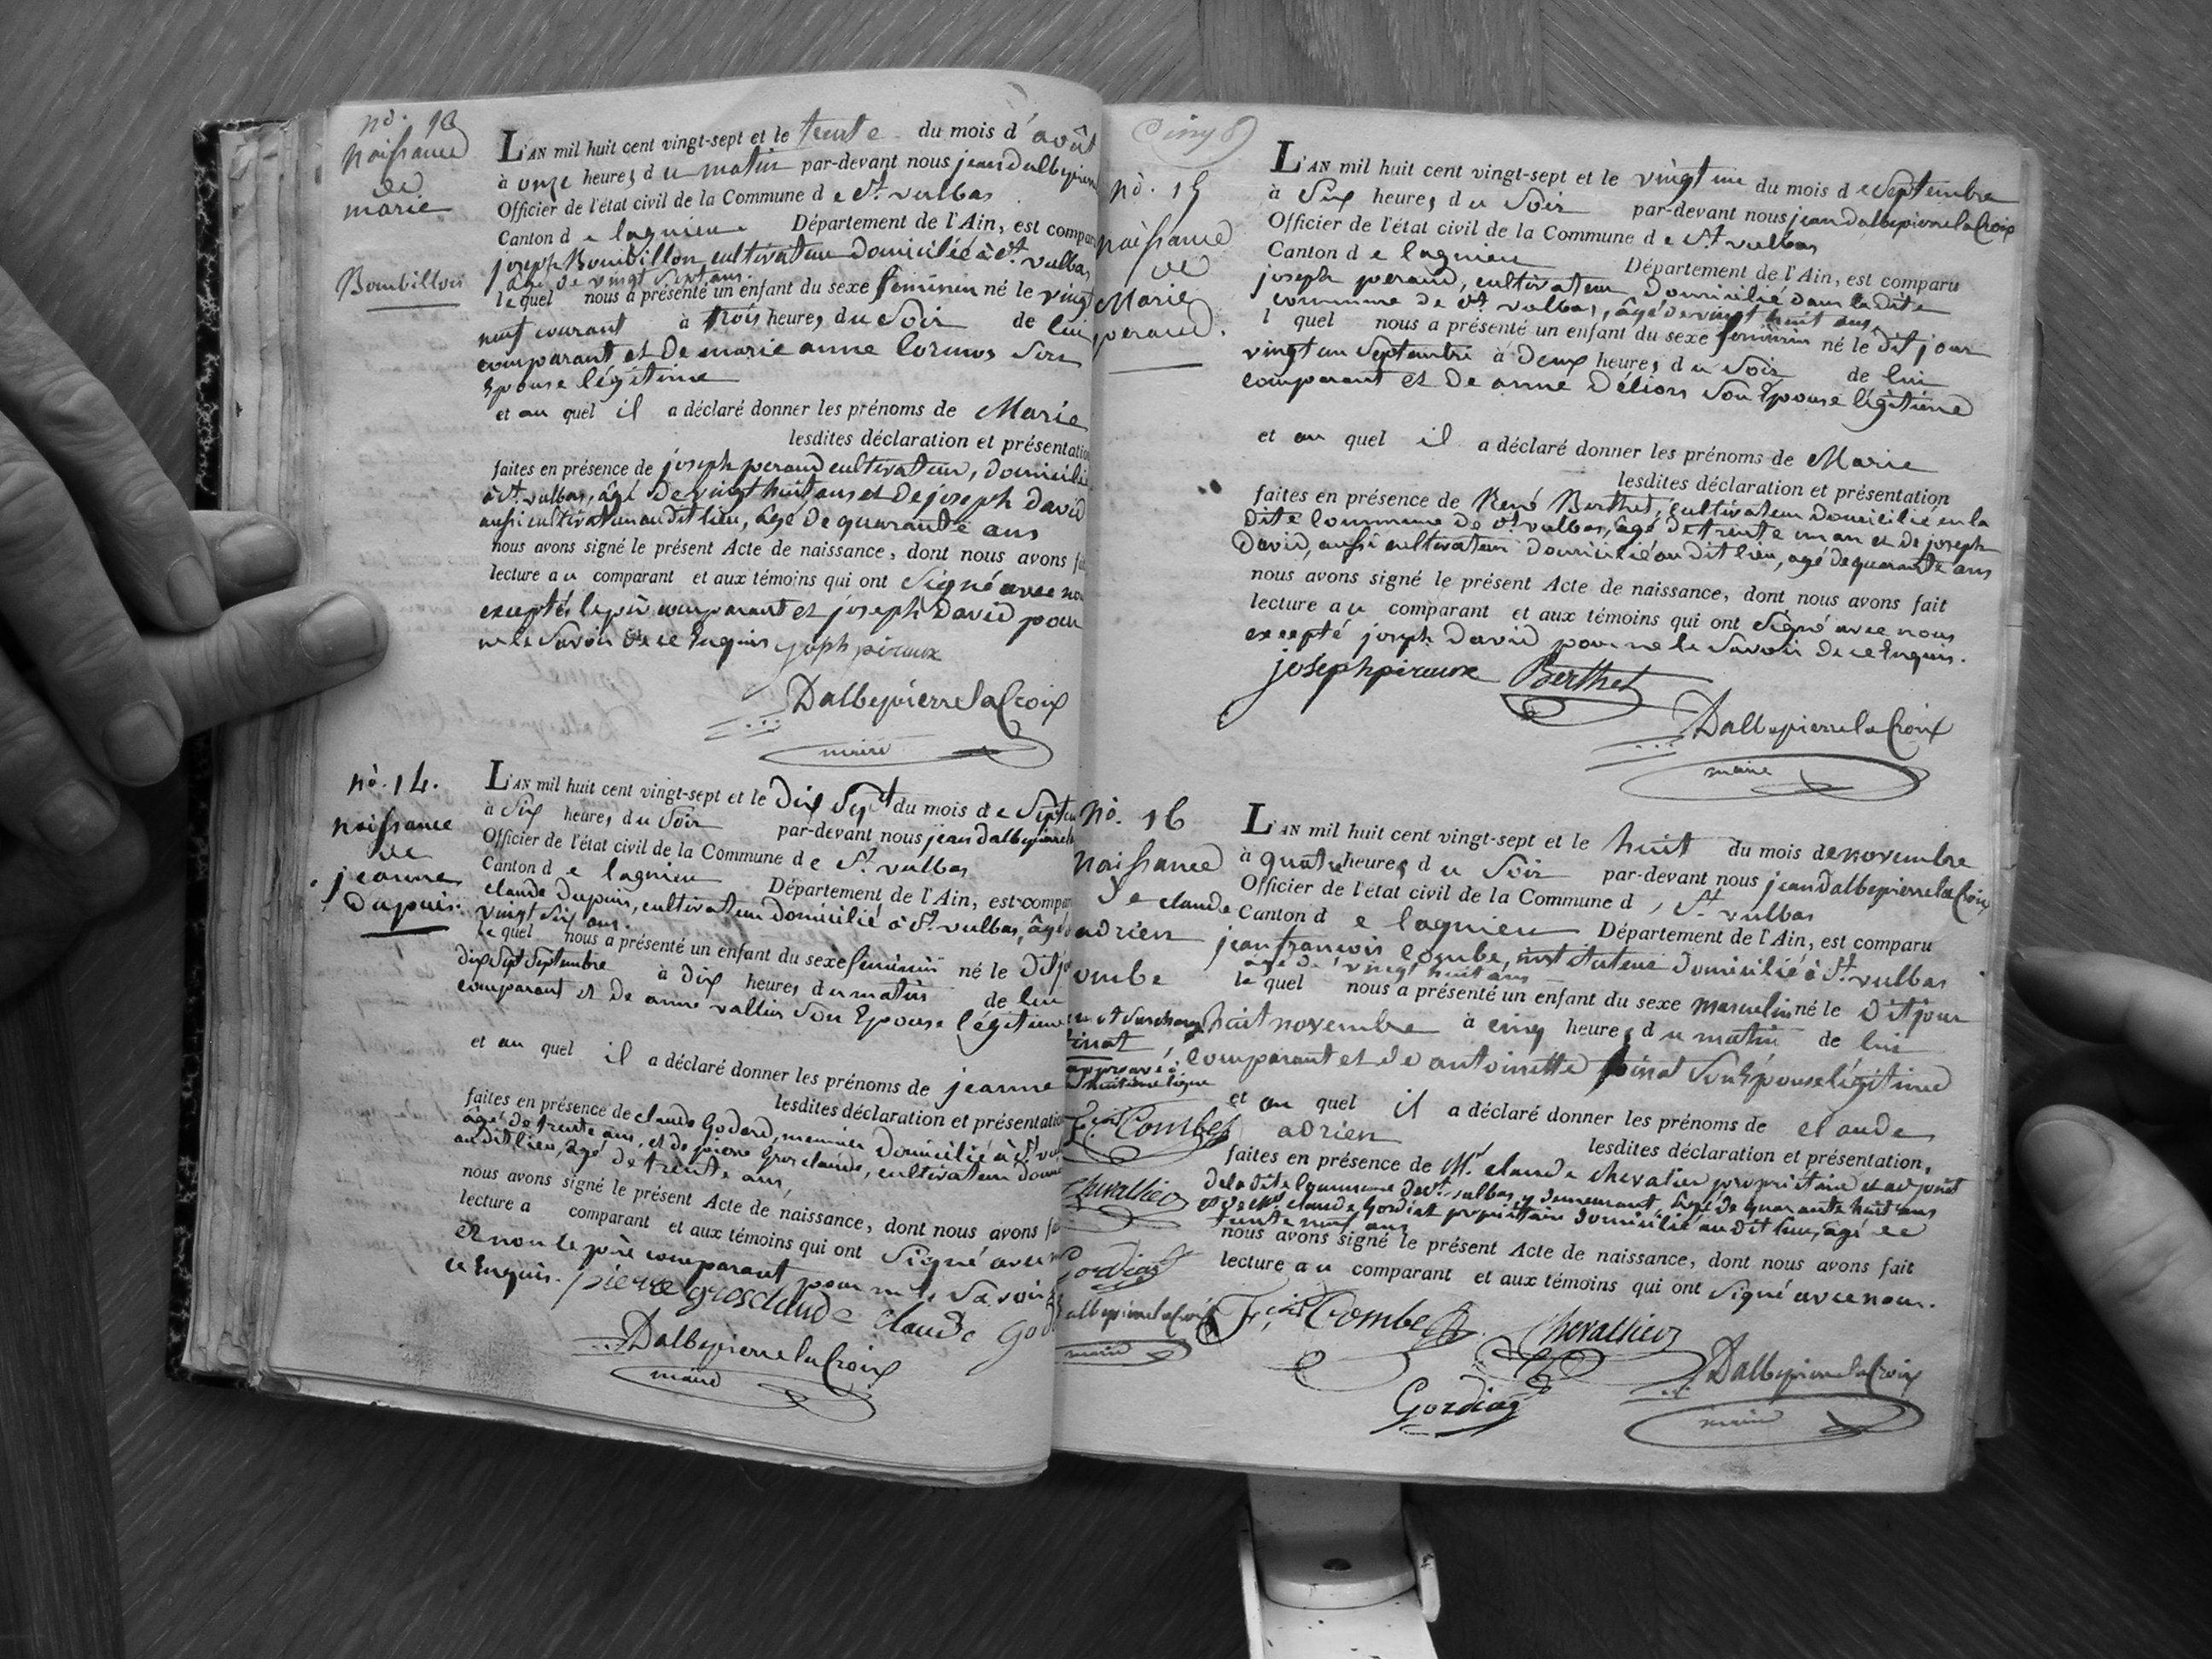 no. 13
Naissance
de
marie
Bourbillon
L'AN mil huit cent vingt-sept et le trente du mois d'août
à onze heures du matin par-devant nous jean dalbepierre
Officier de l'état civil de la Commune de St. vulbas
Canton de lagnieu Département de l'Ain, est compar
joseph Bourbillon cultivateur domicilié à St. vulbas
âgé de vingt sept ans.
lequel nous a présenté un enfant du sexe féminin né le vingt
neuf courant à trois heures du Soir de lui
comparant et de marie anne Son
Epouse légitime
et au quel il a déclaré donner les prénoms de Marie
lesdites déclaration et présentation
faites en présence de joseph peraud cultivateur, domicilié
à St. vulbas, âgé de vingt huit ans et de joseph David
aussi cultivateur au dit lieu, âgé de quarante ans
nous avons signé le présent Acte de naissance, dont nous avons fai
lecture au comparant et aux témoins qui ont Signé avec nou
excepté le père comparant et joseph David pour
ne le Savoir de ce Enquis joseph piraux
Dalbepierre la Croix
maire
no. 14.
naissance
de
jeanne
Dupuis.
L'AN mil huit cent vingt-sept et le Dix Sept du mois de Septem
à Six heures du Soir par-devant nous jean dalbepierre la
Officier de l'état civil de la Commune de St. vulbas
Canton de lagnieu Département de l'Ain, est compar
claude Dupuis, cultivateur domicilié à St. vulbas, âgé de
vingt Six ans.
lequel nous a présenté un enfant du sexe féminin né le dit jo
dix Sept Septembre à dix heures du matin de lui
comparant et de anne vallier Son Epouse légitime
et au quel il a déclaré donner les prénoms de jeanne
lesdites déclaration et présentation
faites en présence de claude Godard, meunier domicilié à St. vul
âgé de trente ans, et de pierre Grosclaude, cultivateur domi
au dit lieu, âgé de trente ans,
nous avons signé le présent Acte de naissance, dont nous avons fa
lecture a comparant et aux témoins qui ont Signé avec n
et non le père comparant pour ne le Savoir
ce Enquis. pierre grosclaude claude God
Dalbepierre la Croix
maire
Cinq
no. 15
naissance
de
Marie
peraud.
L'AN mil huit cent vingt-sept et le vingt un du mois de Septembre
à Six heures du Soir par-devant nous jean dalbepierre la Croix
Officier de l'état civil de la Commune de St. vulbas
Canton de lagnieu Département de l'Ain, est comparu
joseph peraud, cultivateur domicilié dans la dite
commune de St. vulbas, âgé de vingt huit ans
l quel nous a présenté un enfant du sexe féminin né le dit jour
vingt un Septembre à Deux heures du Soir de lui
comparant et de anne Délion Son Epouse légitime
et au quel il a déclaré donner les prénoms de Marie
lesdites déclaration et présentation
faites en présence de René Berthet, cultivateur domicilié en la
dite commune de St. vulbas, âgé de trente un an et de joseph
David, aussi cultivateur domicilié au dit lieu, agé de quarante ans
nous avons signé le présent Acte de naissance, dont nous avons fait
lecture au comparant et aux témoins qui ont Signé avec nous
excepté joseph David pour ne le Savoir de ce Enquis.
joseph piraux Berthet
Dalbepierre la Croix
maire
no. 16
naissance
de claude
adrien
ombe
et Surcharge
inat
approuvé à
huitième ligne
Fçois Combe
Chevallier
Gordiat
albepierre la Croix
maire
L'AN mil huit cent vingt-sept et le huit du mois de novembre
à quatre heures du Soir par-devant nous jean dalbepierre la Croix
Officier de l'état civil de la Commune d St. vulbas
Canton de lagnieu Département de l'Ain, est comparu
jean françois Combe, instituteur domicilié à St. vulbas
agé de vingt huit ans
lequel nous a présenté un enfant du sexe masculin né le dit jour
huit novembre à cinq heures du matin de lui
comparant et de antoinette pinat Son Epouse légitime
et au quel il a déclaré donner les prénoms de claude
adrien lesdites déclaration et présentation,
faites en présence de Mr. claude chevalier propriétaire et adjoint
de la dite Commune de St. vulbas y demeurant, âgé de quarante huit ans
et de Mr. claude Gordiat propriétaire domicilié au dit lieu, âgé de
trente neuf ans
nous avons signé le présent Acte de naissance, dont nous avons fait
lecture au comparant et aux témoins qui ont Signé avec nous.
Fçois Combe Chevallier
Gordiat Dalbepierre la Croix
maire